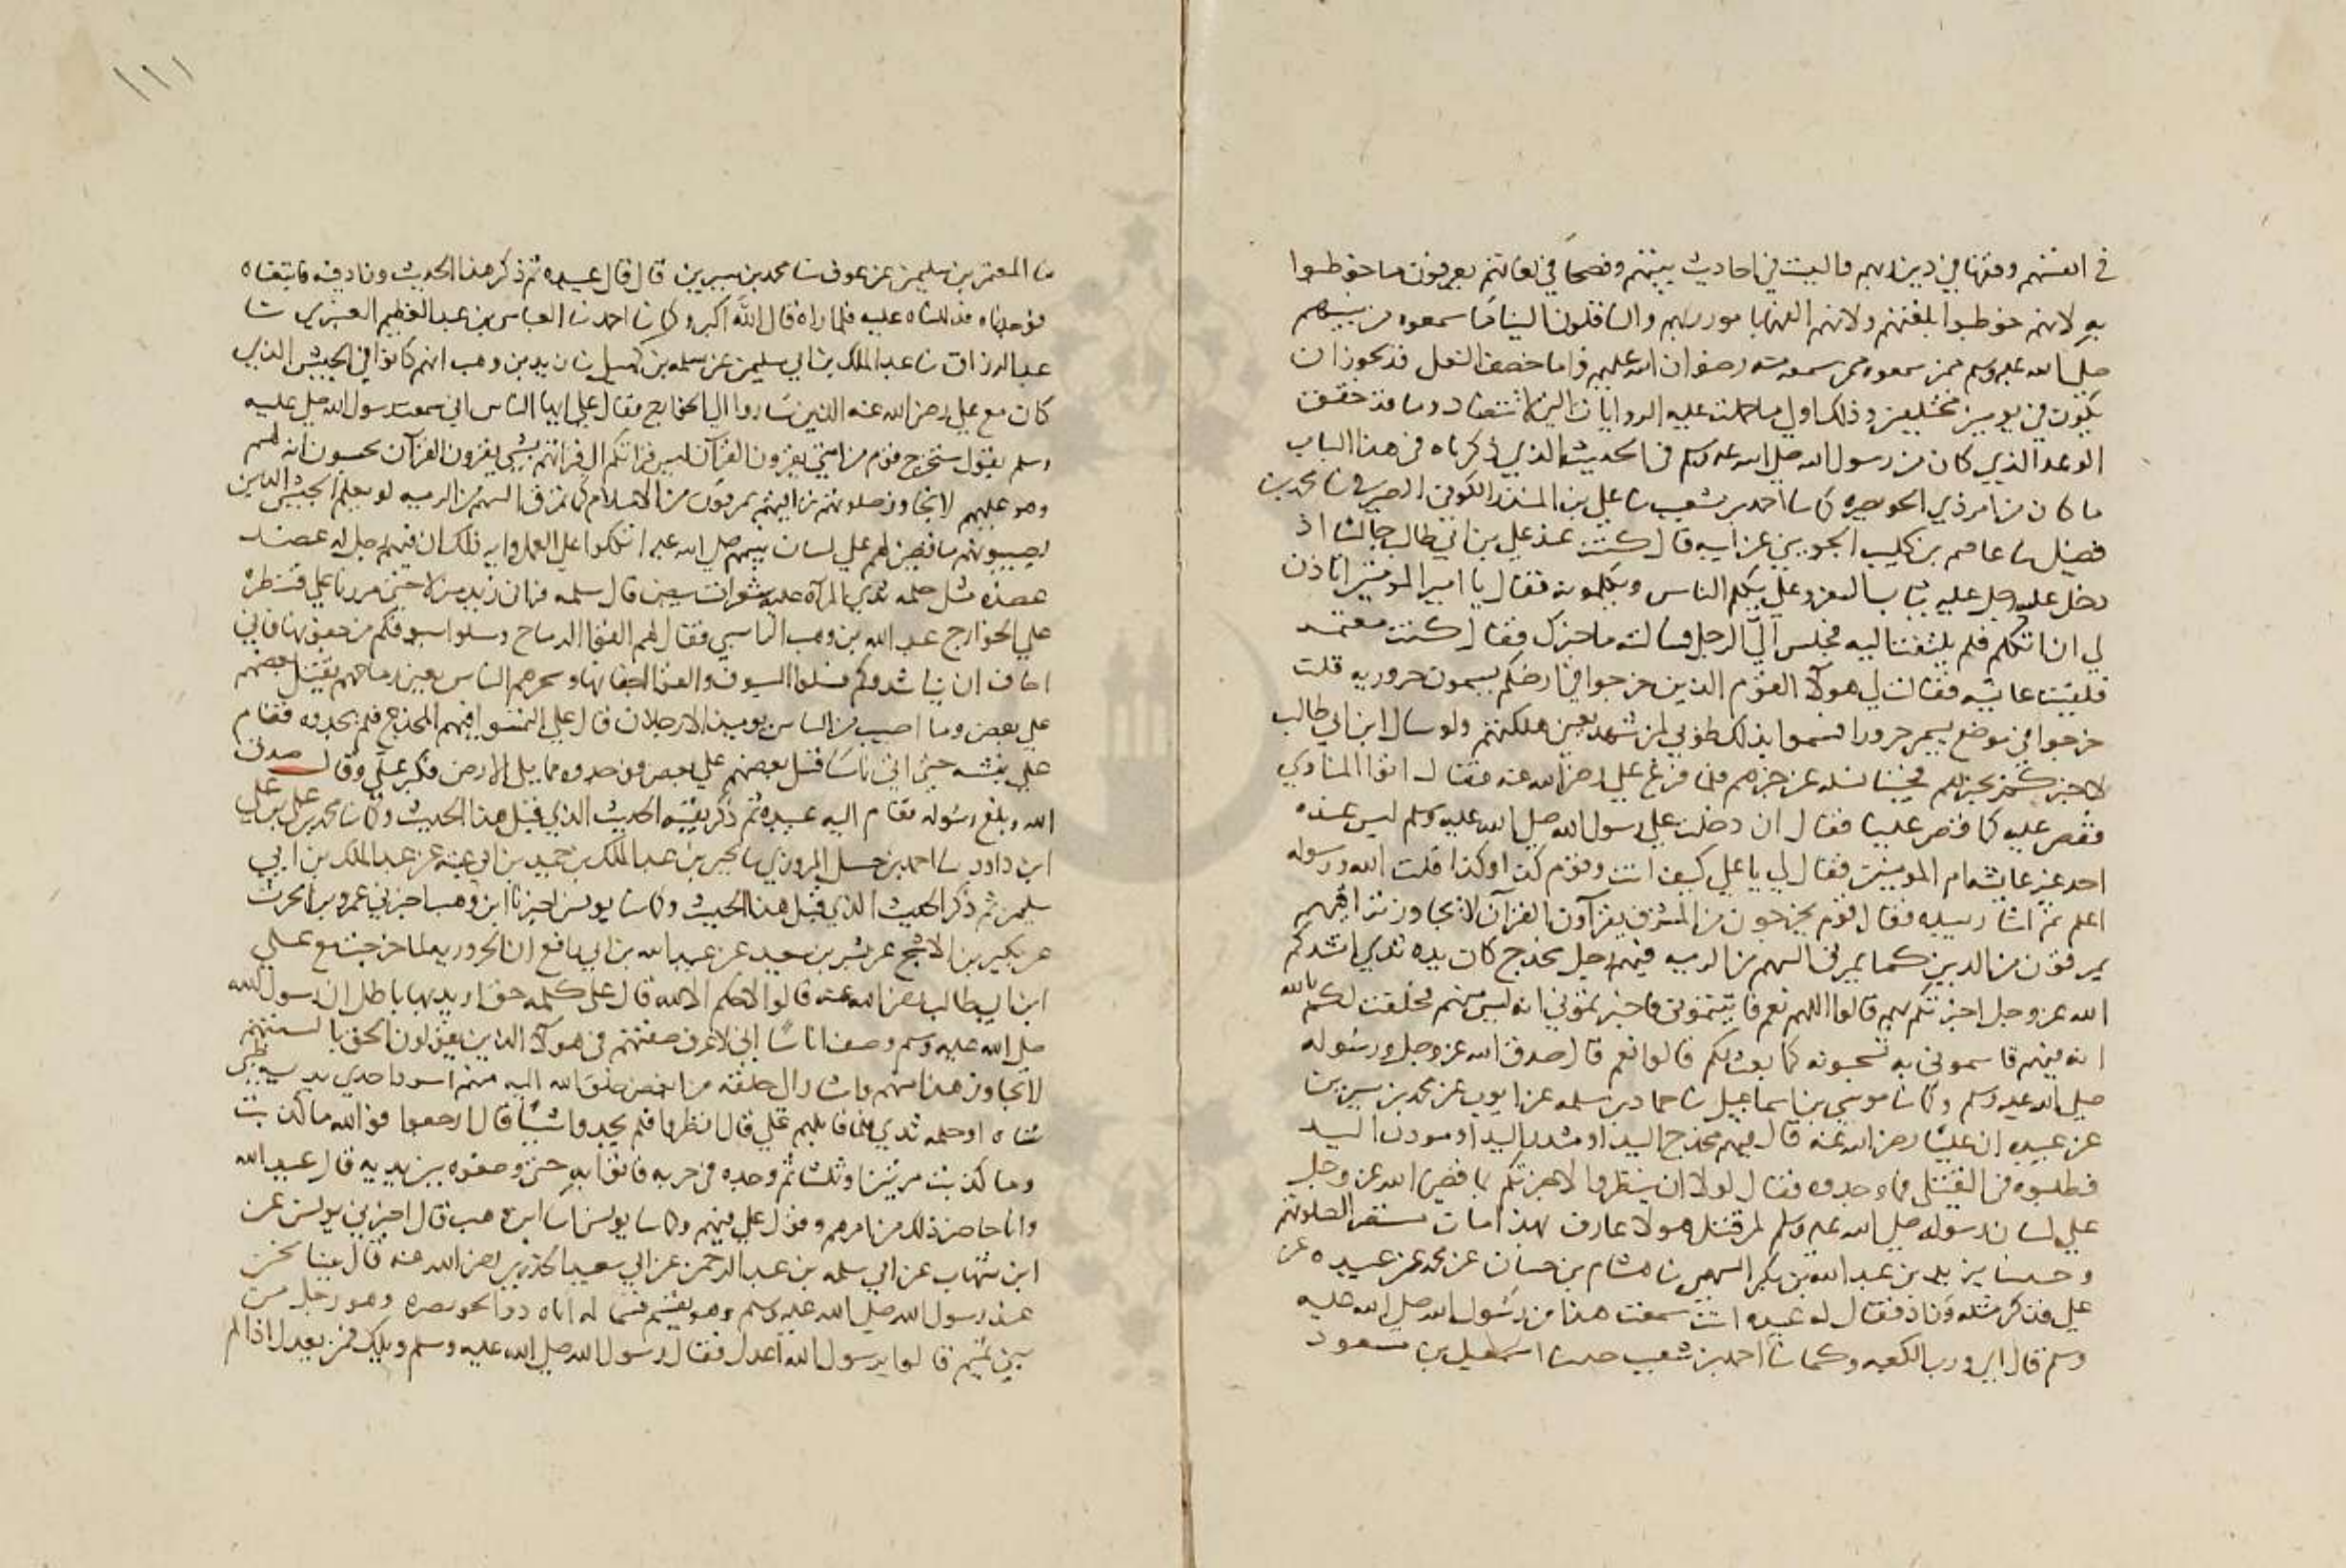 في انفسهم وفقها في دين ربهم واليت في احاديث بينهم وفصحا في لغاتهم يعرفون ما خوطبوا
به لانهم خوطبوا بلغتهم ولانهم الفقها بامور ربهم والناقلون الينا ما سمعوه من نبيهم
صلى الله عليه وسلم ممن سمعوه ممن سمعه منه رضوان الله عليهم واما خصف النعل فذ يجوز ان
يكون في يومين مختلفين وذلك اولى ما حملت عليه الروايات التي لا تتضاد وما قد حقق
الوعد الذي كان من رسول الله صلى الله عليه وسلم في الحديث الذي ذكرناه في هذا الباب
ما كان من امر ذي الخويصره كما سا احمد بن شعيب سا علي بن المنذر الكوفي سا محمد بن
فضيل سا عاصم بن كليب الجرمي عن ابيه قال كنت عند علي بن ابي طالب جالسا اذ
دخل عليه رجل عليه ثياب السفر وعلي يكلم الناس ويكلمونه فقال يا امير المومنين اتاذن
لي ان اتكلم فلم يلتفت اليه فجلس الى الرجل فسالته ما خبرك فقال كنت معتمر
فلقيت عايشه فقالت لي هولآ القوم الذين خرجوا في ارضكم يسمون حروريه قلت
خرجوا في موضع يسمى حرورا فسموا بذلك طوبى لمن شهد يعني هلكتهم ولو سال ابن ابي طالب
لاخبركم بخبرهم فجينا نساله عن خبرهم فلما فرغ علي رضي الله عنه فقال اين المنادي
فقص عليه كما قص علينا فقال اني دخلت على رسول الله صلى الله عليه وسلم ليس عنده
احد غير عايشه ام المومنين فقال لي يا علي كيف انت وقوم كذا وكذا قلت الله ورسوله
اعلم ثم اشار بيده فقال قوم يخرجون من المشرق يقرآون القرآن لا يجاوز تراقيهم
يمرقون من الدين كما يمرق السهم من الرميه فيهم رجل مخدج كان يده ثدي انشدكم
الله عز وجل اخبرتكم بهم قالوا اللهم نعم فاتيتموني فاخبرتموني انه ليس منهم فحلفت لكم بالله
انه فيهم فاتيتموني به تسحبونه كما نعت لكم قالوا نعم قال صدق الله عز وجل ورسوله
صلى الله عليه وسلم وكما سا موسى بن اسماعيل سا حماد بن سلمه عن ايوب عن محمد بن سيرين
عن عبيده ان عليا رضي الله عنه قال فيهم مخدج اليد او مثدن اليد او مودن اليد
فطلبوه في القتلى فما وجدوه فقال لولا ان ينظروا لاخبرتكم بما قضى الله عز وجل
على لسان رسوله صلى الله عليه وسلم لمن قتل هولا عارف بهذا امات مستقر الصلوتهم
وحدثنا يزيد بن عبد الله بن بكر السهمي سا هشام بن حسان عن محمد عن عبيده عن
علي فذكر مثله وزاد فقال له عبيده انت سمعت هذا من رسول الله صلى الله عليه
وسلم قال اي ورب الكعبه وكما سا احمد بن شعيب حدثنا اسمعيل بن مسعود
ما المعتمر بن سليمن عن عوف سا محمد بن سيرين قال قال عبيده ثم ذكر هذا الحديث وزاد فيه فابتغناه
فوجدناه فدللناه عليه فلما راه قال الله اكبر وكما سا احمد سا العباس بن عبد العظيم العنبري سا
عبد الرزاق سا عبد الملك بن ابي سليمن عن سلمه بن كهيل سا زيد بن وهب انهم كانوا في الجيش الذي
كان مع علي رضي الله عنه الذين ساروا الى الخوارج فقال علي ايها الناس اني سمعت رسول الله صلى عليه
وسلم يقول سيخرج قوم من امتي يقرون القرآن ليس قراتكم الى قراتهم بشي يقرون القرآن يحسبون انه لهم
وهو عليهم لا تجاوز صلوتهم تراقيهم يمرقون من الاسلام كما يمرق السهم من الرميه لو يعلم الجيش الذين
يصيبونهم ما قضي لهم على لسان نبيهم صلى الله عليه اتكلوا على العمل وايه ذلك ان فيهم رجل له عضد
عضده مثل حلمه ثدي المرآه عليه شعرات بيض قال سلمه فزان زيد منزلا حتى مررنا على قنطره
على الخوارج عبد الله بن وهب الراسبي فقال لهم القوا الرماح وسلوا سيوفكم من جفونها فاني
اخاف ان يناشدوكم فسلوا السيوف والقوا جفانها وشجرهم الناس يعني رماحهم فقتل بعضهم
على بعض وما اصيب من الناس يومئذ الا رجلان قال علي التمسوا فيهم المخدج فلم يجدوه فقام
علي بنفسه حتى اتى ناسا قتل بعضهم على بعض فوجدوه مما يلي الارض فكبر علي وقال صدق
الله وبلغ رسوله فقام اليه عبيده ثم ذكر بقيه الحديث الذي قبل هذا الحديث وكما سا محمد بن علي بن
ابن داود سا احمد بن جميل المروزي سا يحيى بن عبد الملك بن حميد بن ابي غنيه عن عبد الملك بن ابي
سليمن ثم ذكر الحديث الذي قبل هذا الحديث وكما سا يونس اخبرنا ابن وهب اخبرني عمرو بن الحرث
عن بكير بن الاشج عن بسر بن سعيد عن عبيد الله بن ابي رافع ان الحروريه لما خرجت مع علي
ابن ابي طالب رضي الله عنه قالوا لا حكم الا لله قال علي كلمه حق اريد بها باطل ان رسول الله
صلى الله عليه وسلم وصف اناسا اني لاعرف صفتهم في هولآ الذين يقولون الحق بالسنتهم
لا يجاوز هذا منهم واشار الى حلقه من ابغض خلق الله اليه منهم اسود احدى يديه طبي
شاه او حلمه ثدي فلما قاتلهم علي قال انظروا فلم يجدوا شيا قال ارجعوا فوالله ما كذبت
وما كذبت مرتين او ثلثا ثم وجدوه في خربه فاتوا به حتى وضعوه بين يديه قال عبيد الله
وانا حاضر ذلك من امرهم وقول علي فيهم وكما سا يونس سا ابن وهب قال اخبرني يونس عن
ابن شهاب عن ابي سلمه بن عبد الرحمن عن ابي سعيد الخدري رضي الله عنه قال بينا نحن
عند رسول الله صلى الله عليه وسلم وهو يقسم قسما له اتاه ذو الخويصره وهو رجل من
بني تميم قالوا يرسول الله اعدل فقال رسول الله صلى الله عليه وسلم ويلك فمن يعدل اذا لم
١١١